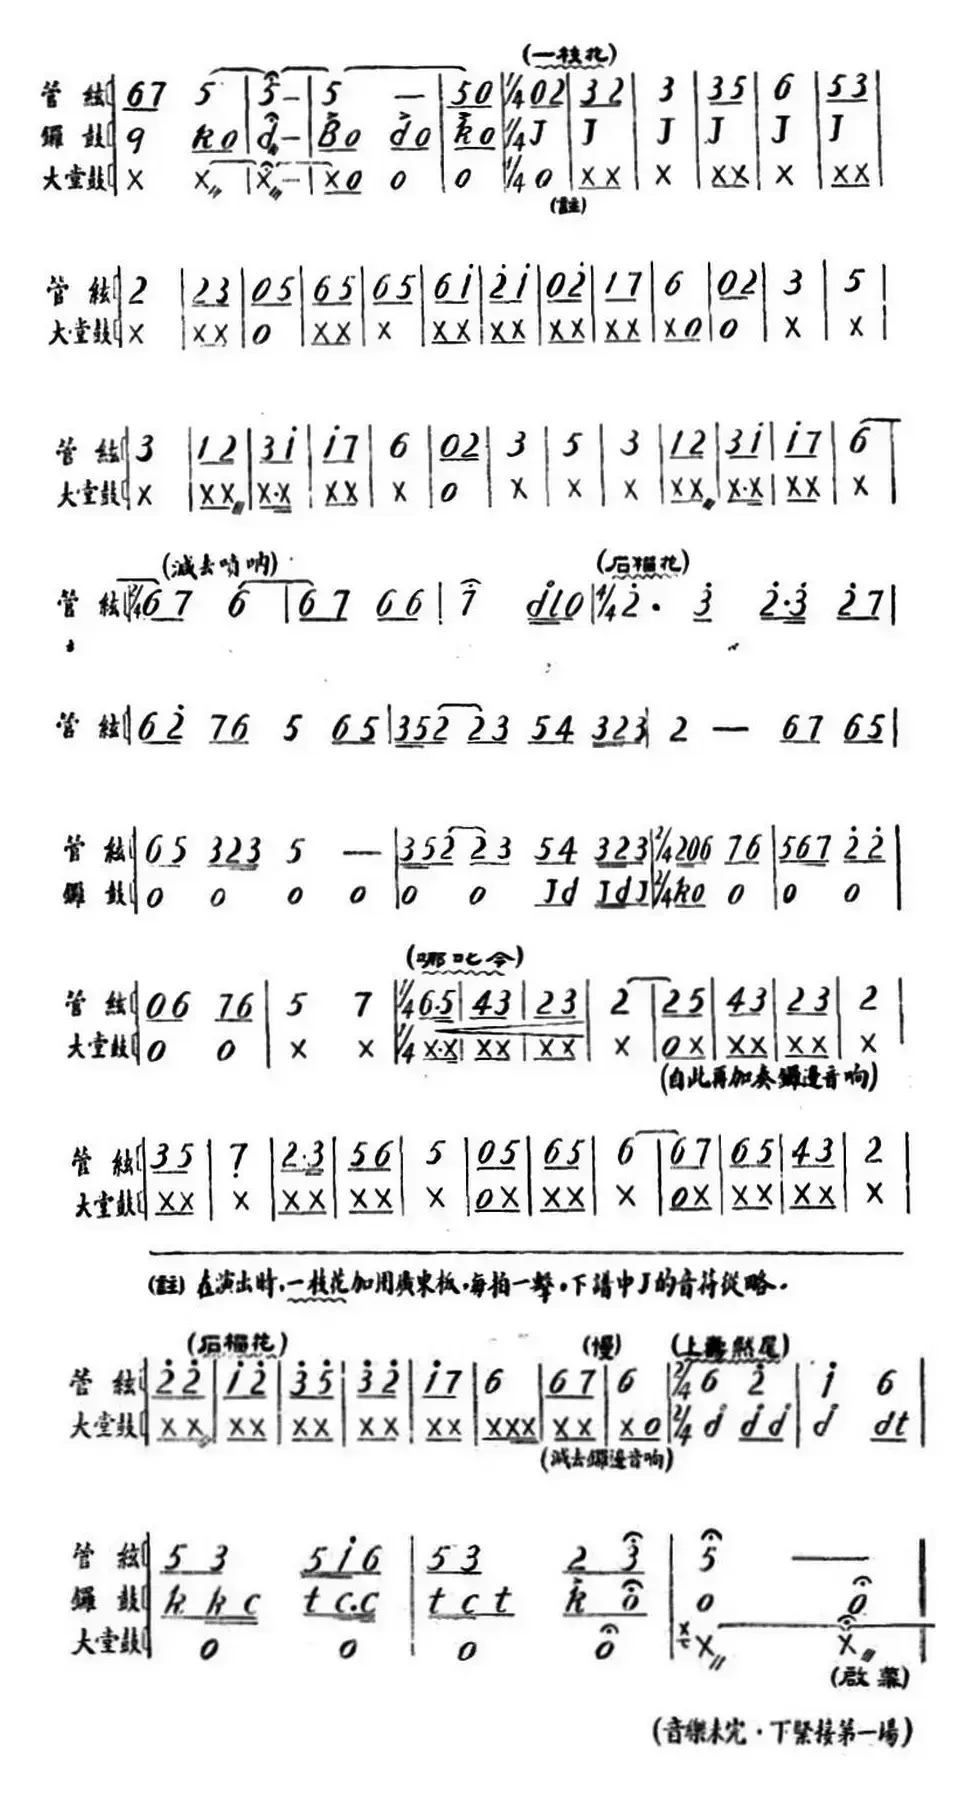 (一枝花)
管絃 67 5 | 5 – | 5 — 50 | 1/4 02 | 32 | 3 | 35 | 6 | 53 |
鑼鼓 9 k0 | d – | B0 d0 k0 | 1/4 J | J | J | J | J | J |
大堂鼓 X X | X – | X0 0 0 | 1/4 0 | XX | X | XX | X | XX |
(註)
管絃 2 | 23 | 05 | 65 | 65 | 6i | 2i | 02 | 17 | 6 | 02 | 3 | 5 |
大堂鼓 X | XX | 0 | XX | X | XX | XX | XX | XX | X0 | 0 | X | X
管絃 3 | 12 | 3i | i7 | 6 | 02 | 3 | 5 | 3 | 12 | 3i | i7 | 6 |
大堂鼓 X | XX | X·X | XX | X | 0 | X | X | X | XX | X·X | XX | X |
(減去嗩吶) (石榴花)
管絃 2/4 67 6 | 67 66 | 7 dl0 | 4/4 2· 3 2·3 27 |
管絃 62 76 5 65 | 352 23 54 323 | 2 — 67 65 |
管絃 65 323 5 — | 352 23 54 323 | 2/4 206 76 | 567 22 |
鑼鼓 0 0 0 0 | 0 0 Jd JdJ | 2/4 k0 0 | 0 0 |
(哪叱令)
管絃 06 76 | 5 7 | 1/4 6·5 | 43 | 23 | 2 | 25 | 43 | 23 | 2 |
大堂鼓 0 0 | X X | 1/4 X·X | XX | XX | X | 0X | XX | XX | X |
(自此再加奏鑼邊音响)
管絃 35 | 7 | 2·3 | 56 | 5 | 05 | 65 | 6 | 67 | 65 | 43 | 2 |
大堂鼓 XX | X | XX | XX | X | 0X | XX | X | 0X | XX | XX | X |
(註) 在演出時,一枝花加用廣東板,每拍一擊,下譜中J的音符從略。
(石榴花) (慢) (上壽煞尾)
管絃 22 | i2 | 35 | 32 | i7 | 6 | 67 | 6 | 2/4 6 2 | i 6 |
大堂鼓 XX | XX | XX | XX | XX | XXX | XX | X0 | 2/4 d dd | d dt |
(減去鑼邊音响)
管絃 53 5i6 | 53 23 | 5 — |
鑼鼓 kkc tc.c | tct k0 | 0 0 |
大堂鼓 0 0 | 0 0 | X X |
(啟幕)
(音樂未完·下緊接第一場)